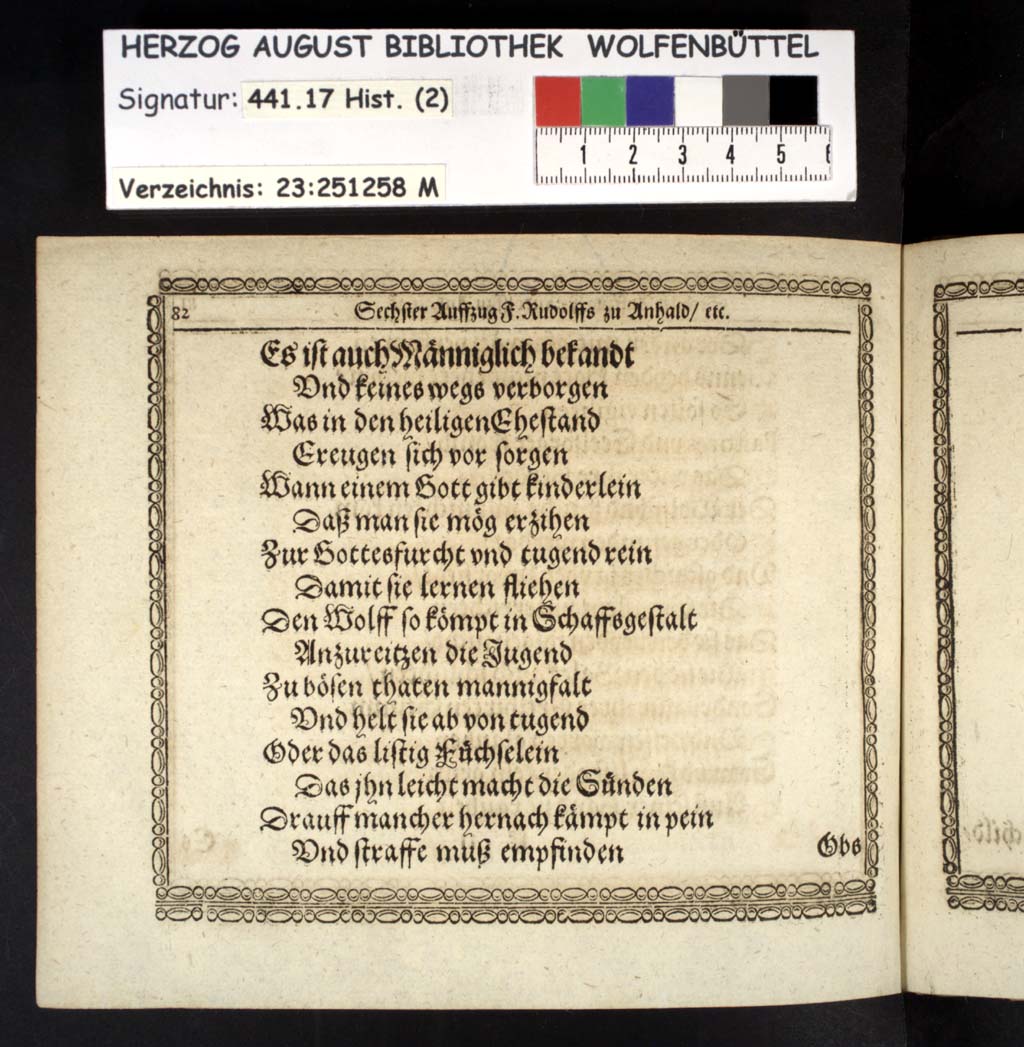 HERZOG AUGUST BIBLIOTHEK WOLFENBÜTTEL
Signatur: 441.17 Hist. (2)
1 2 3 4 5 6
Verzeichnis: 23:251258 M
82 Sechster Auffzug F. Rudolffs zu Anhald/ etc.
Es ist auch Männiglich bekandt
Vnd keines wegs verborgen
Was in den heiligen Ehestand
Ereugen sich vor sorgen
Wann einem Gott gibt kinderlein
Daß man sie mög erzihen
Zur Gottesfurcht vnd tugend rein
Damit sie lernen fliehen
Den Wolff so kömpt in Schaffsgestalt
Anzureitzen die Jugend
Zu bösen thaten mannigfalt
Vnd helt sie ab von tugend
Oder das listig Füchselein
Das jhn leicht macht die Sünden
Drauff mancher hernach kämpt in pein
Vnd straffe muß empfinden
Obs